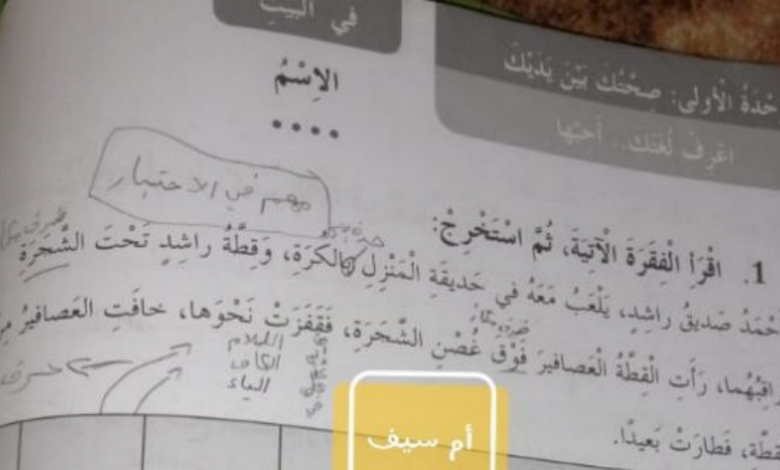 في البيت
حْدَةُ الْأُولى: صِحَّتُكَ بَيْنَ يَدَيْكَ
اعْرِفْ لُغَتَكَ.. أَحِبَّها
الِاسْمُ
مهم في الاختبار
1. اقْرَأِ الْفِقرَةَ الْآتِيَةَ، ثُمَّ اسْتَخْرِجْ:
حْمَدُ صَديقُ راشِدٍ، يَلْعَبُ مَعَهُ في حَديقَةِ الْمَنْزِلِ بِالكُرَةِ، وَقِطَّةُ راشِدٍ تَحْتَ الشَّجَرَةِ
راقِبُهُما، رَأَتِ الْقِطَّةُ الْعَصافيرَ فَوْقَ غُصْنِ الشَّجَرَةِ، فَقَفَزَتْ نَحْوَها، خافَتِ العَصافيرُ مِنَ
قِطَّةِ، فَطارَتْ بَعيدًا.
اللام
الكاف
الباء
حرف
أم سيف